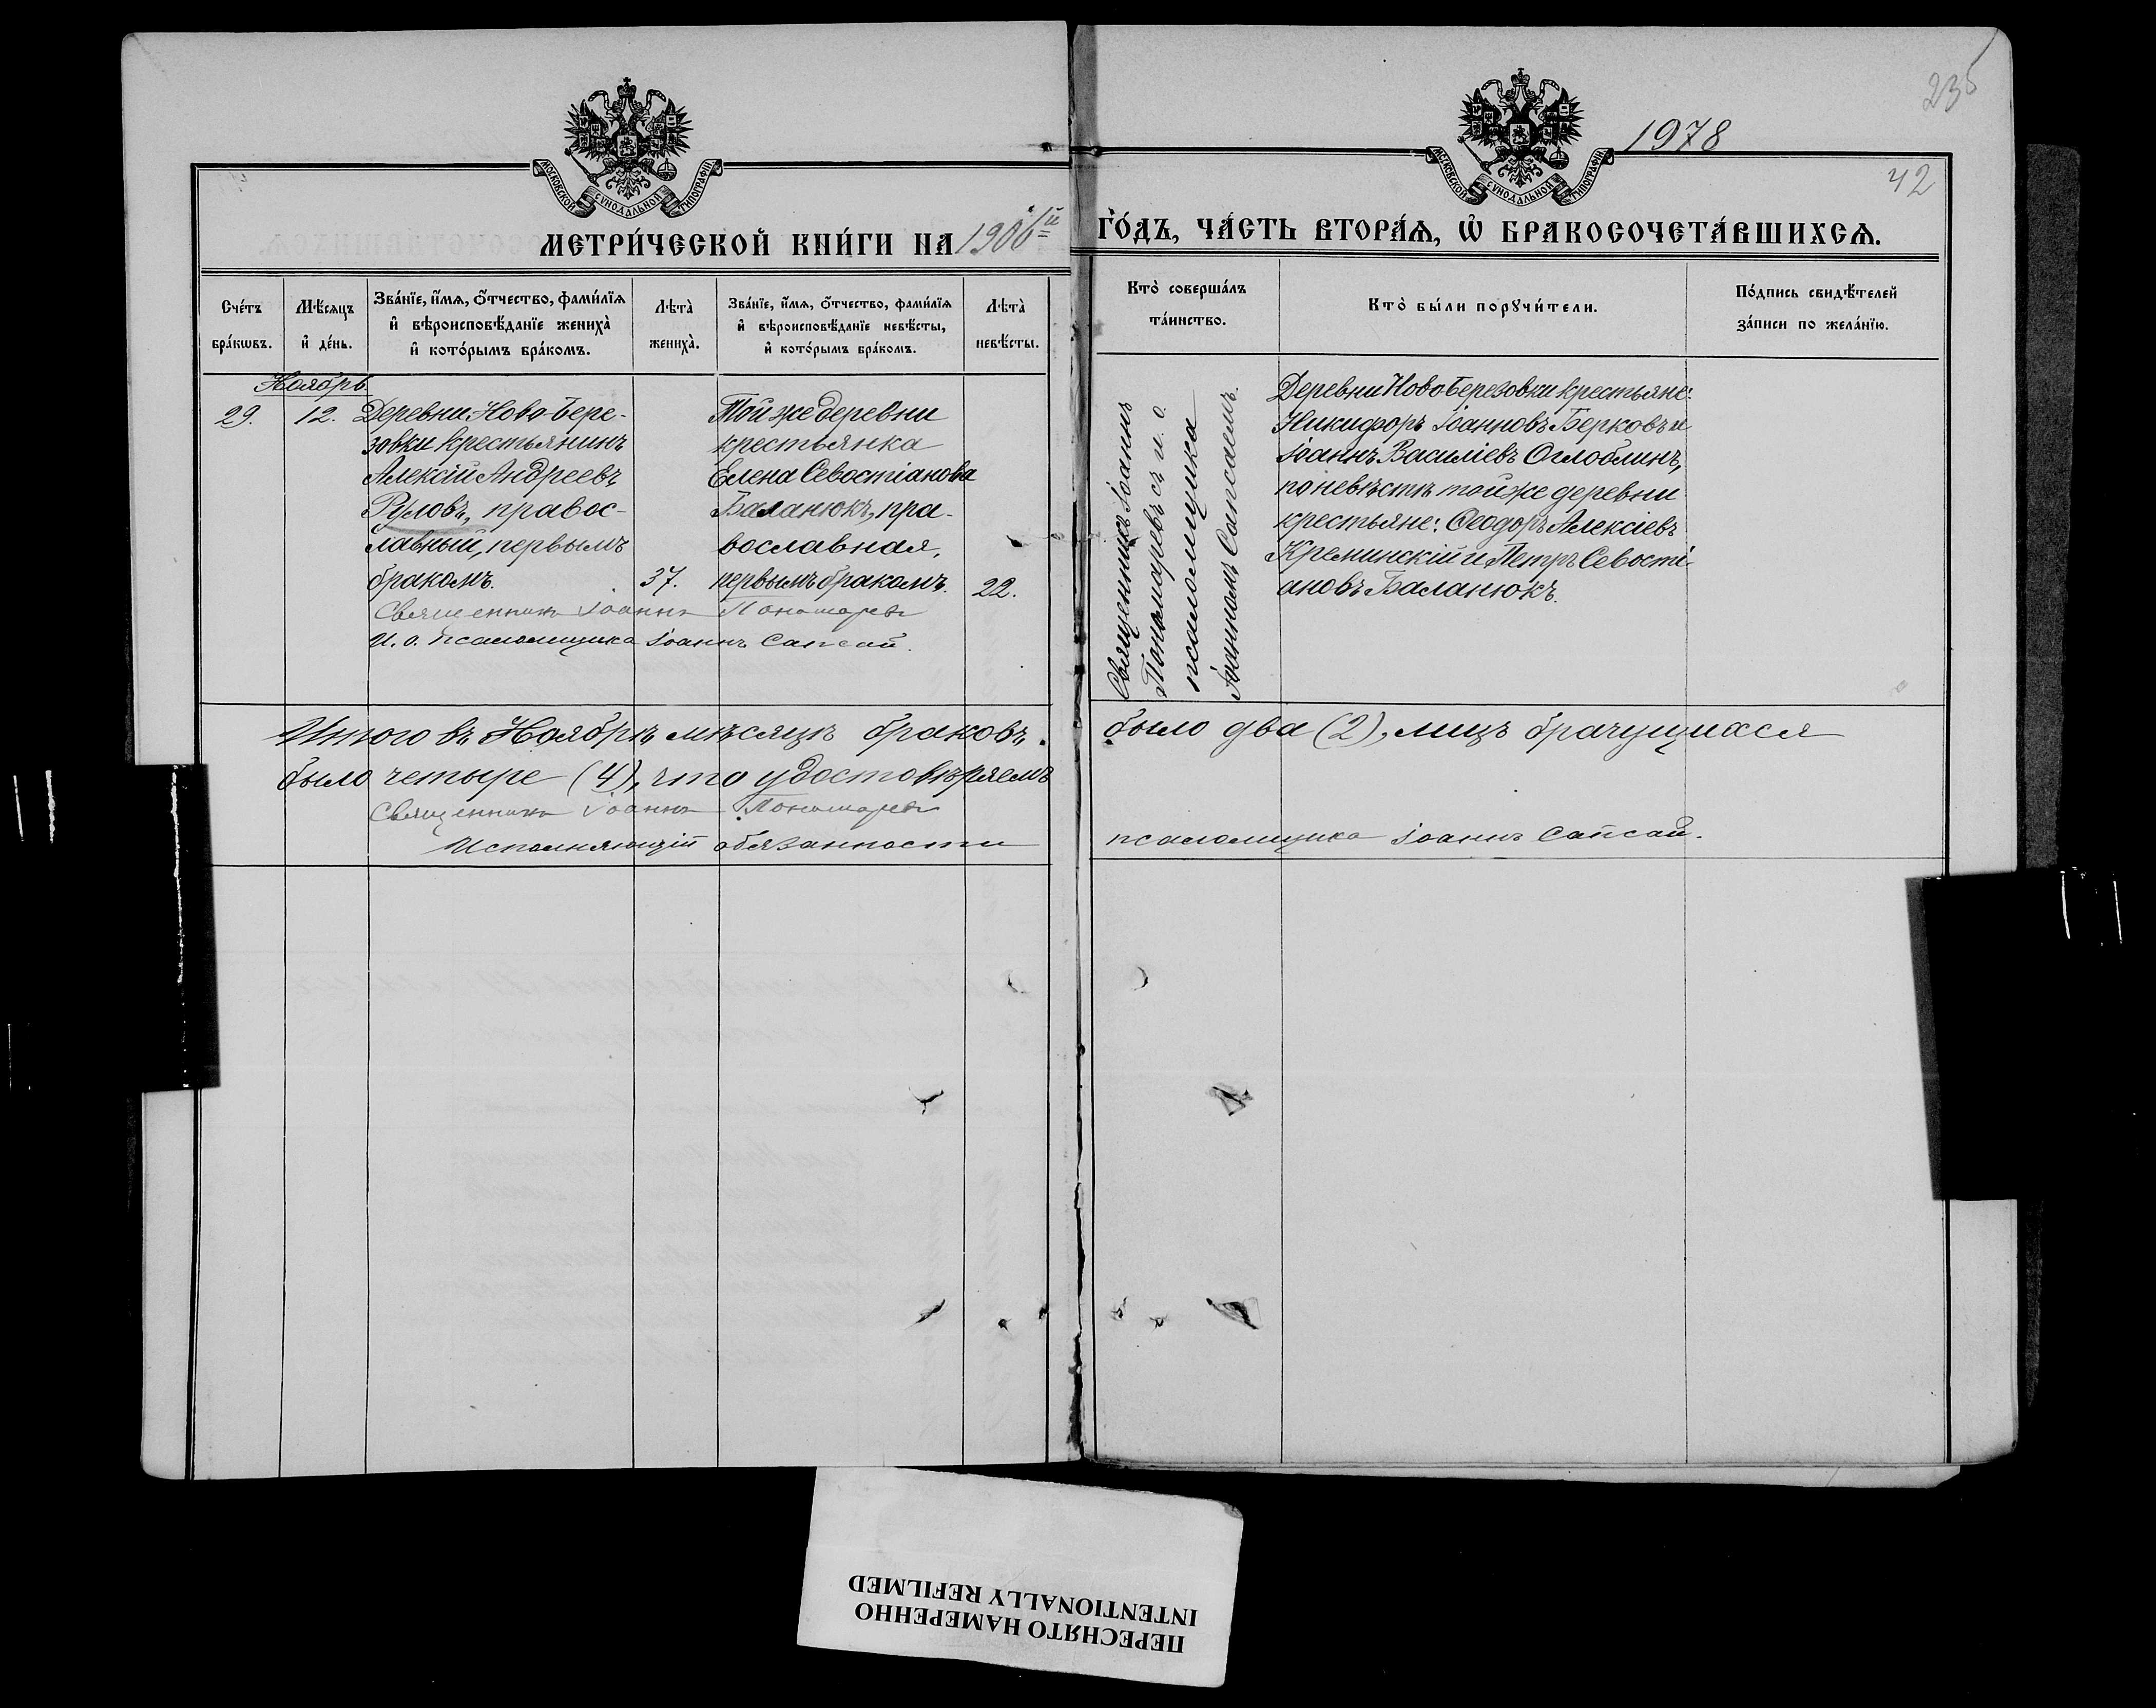 235
1978
42
МОСКОВСКОЙ СѴНОДАЛЬНОЙ ТИПОГРАФІИ
МОСКОВСКОЙ СѴНОДАЛЬНОЙ ТИПОГРАФІИ
МЕТРИ́ЧЕСКОЙ КНИ́ГИ НА 1906й
ГО́ДЪ, ЧА́СТЬ ВТОРА́Ѧ, Ѽ БРАКОСОЧЕТА́ВШИХСѦ.
Сче́тъ
бра́кѡвъ.
Мѣ́сяцъ
и де́нь.
Зва́нїе, и́мѧ, ѻ́тчество, фами́лїѧ
и҆ вѣроисповѣ́данїе жениха̀
и҆ кото́рымъ бра́комъ.
Лѣта̀
жениха̀.
Зва́нїе, и́мѧ, ѻ́тчество, фами́лїѧ
и҆ вѣроисповѣ́данїе невѣ́сты,
и҆ кото́рымъ бра́комъ.
Лѣта̀
невѣ́сты.
Кто̀ соверша́лъ
та́инство.
Кто̀ бы́ли порꙋчи́тели.
По́дпись свидѣ́телей
за́писи по жела́нїю.
Ноябрь.
29.
12.
Деревни Ново-Бере-
зовки крестьянинъ
Алексій Андреевъ
Руловъ, правос-
лавный, первымъ
бракомъ.
37.
Той же деревни
крестьянка
Елена Севостіанова
Баланюкъ, пра-
вославная,
первымъ бракомъ.
22.
Священникъ Іоаннъ Пономаревъ
И. о. псаломщика Іоаннъ Сапсай.
Священникъ Іоаннъ
Пономаревъ съ и. о.
псаломщика
Іоанномъ Сапсаемъ.
Деревни Ново-Березовки крестьяне:
Никифоръ Іоанновъ Берковъ и
Іоаннъ Василіевъ Оглоблинъ,
по невѣстѣ той же деревни
крестьяне: Ѳеодоръ Алексіевъ
Креминскій и Петръ Севості-
ановъ Баланюкъ.
Итого въ Ноябрѣ мѣсяцѣ браковъ было два (2), лицъ брачущихся
было четыре (4), что удостовѣряемъ
Священникъ Іоаннъ Пономаревъ
Исполняющій обязанности псаломщика Іоаннъ Сапсай.
ПЕРЕСНЯТО НАМЕРЕННО
INTENTIONALLY REFILMED